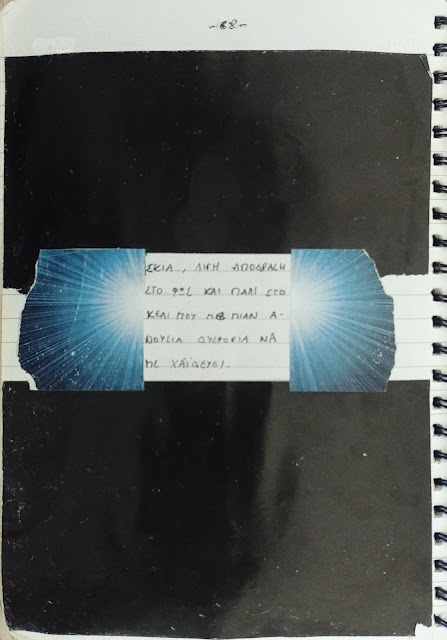 -68-
ΣΚΙΑ, ΛΙΓΗ ΑΠΟΔΡΑΣΗ
ΣΤΟ ΦΩΣ ΚΑΙ ΠΑΛΙ ΣΤΟ
ΚΕΛΙ ΜΟΥ ΜΕ ΜΙΑΝ Α-
ΠΟΥΣΙΑ ΔΥΣΦΟΡΙΑ ΝΑ
ΜΕ ΧΑΪΔΕΥΕΙ.